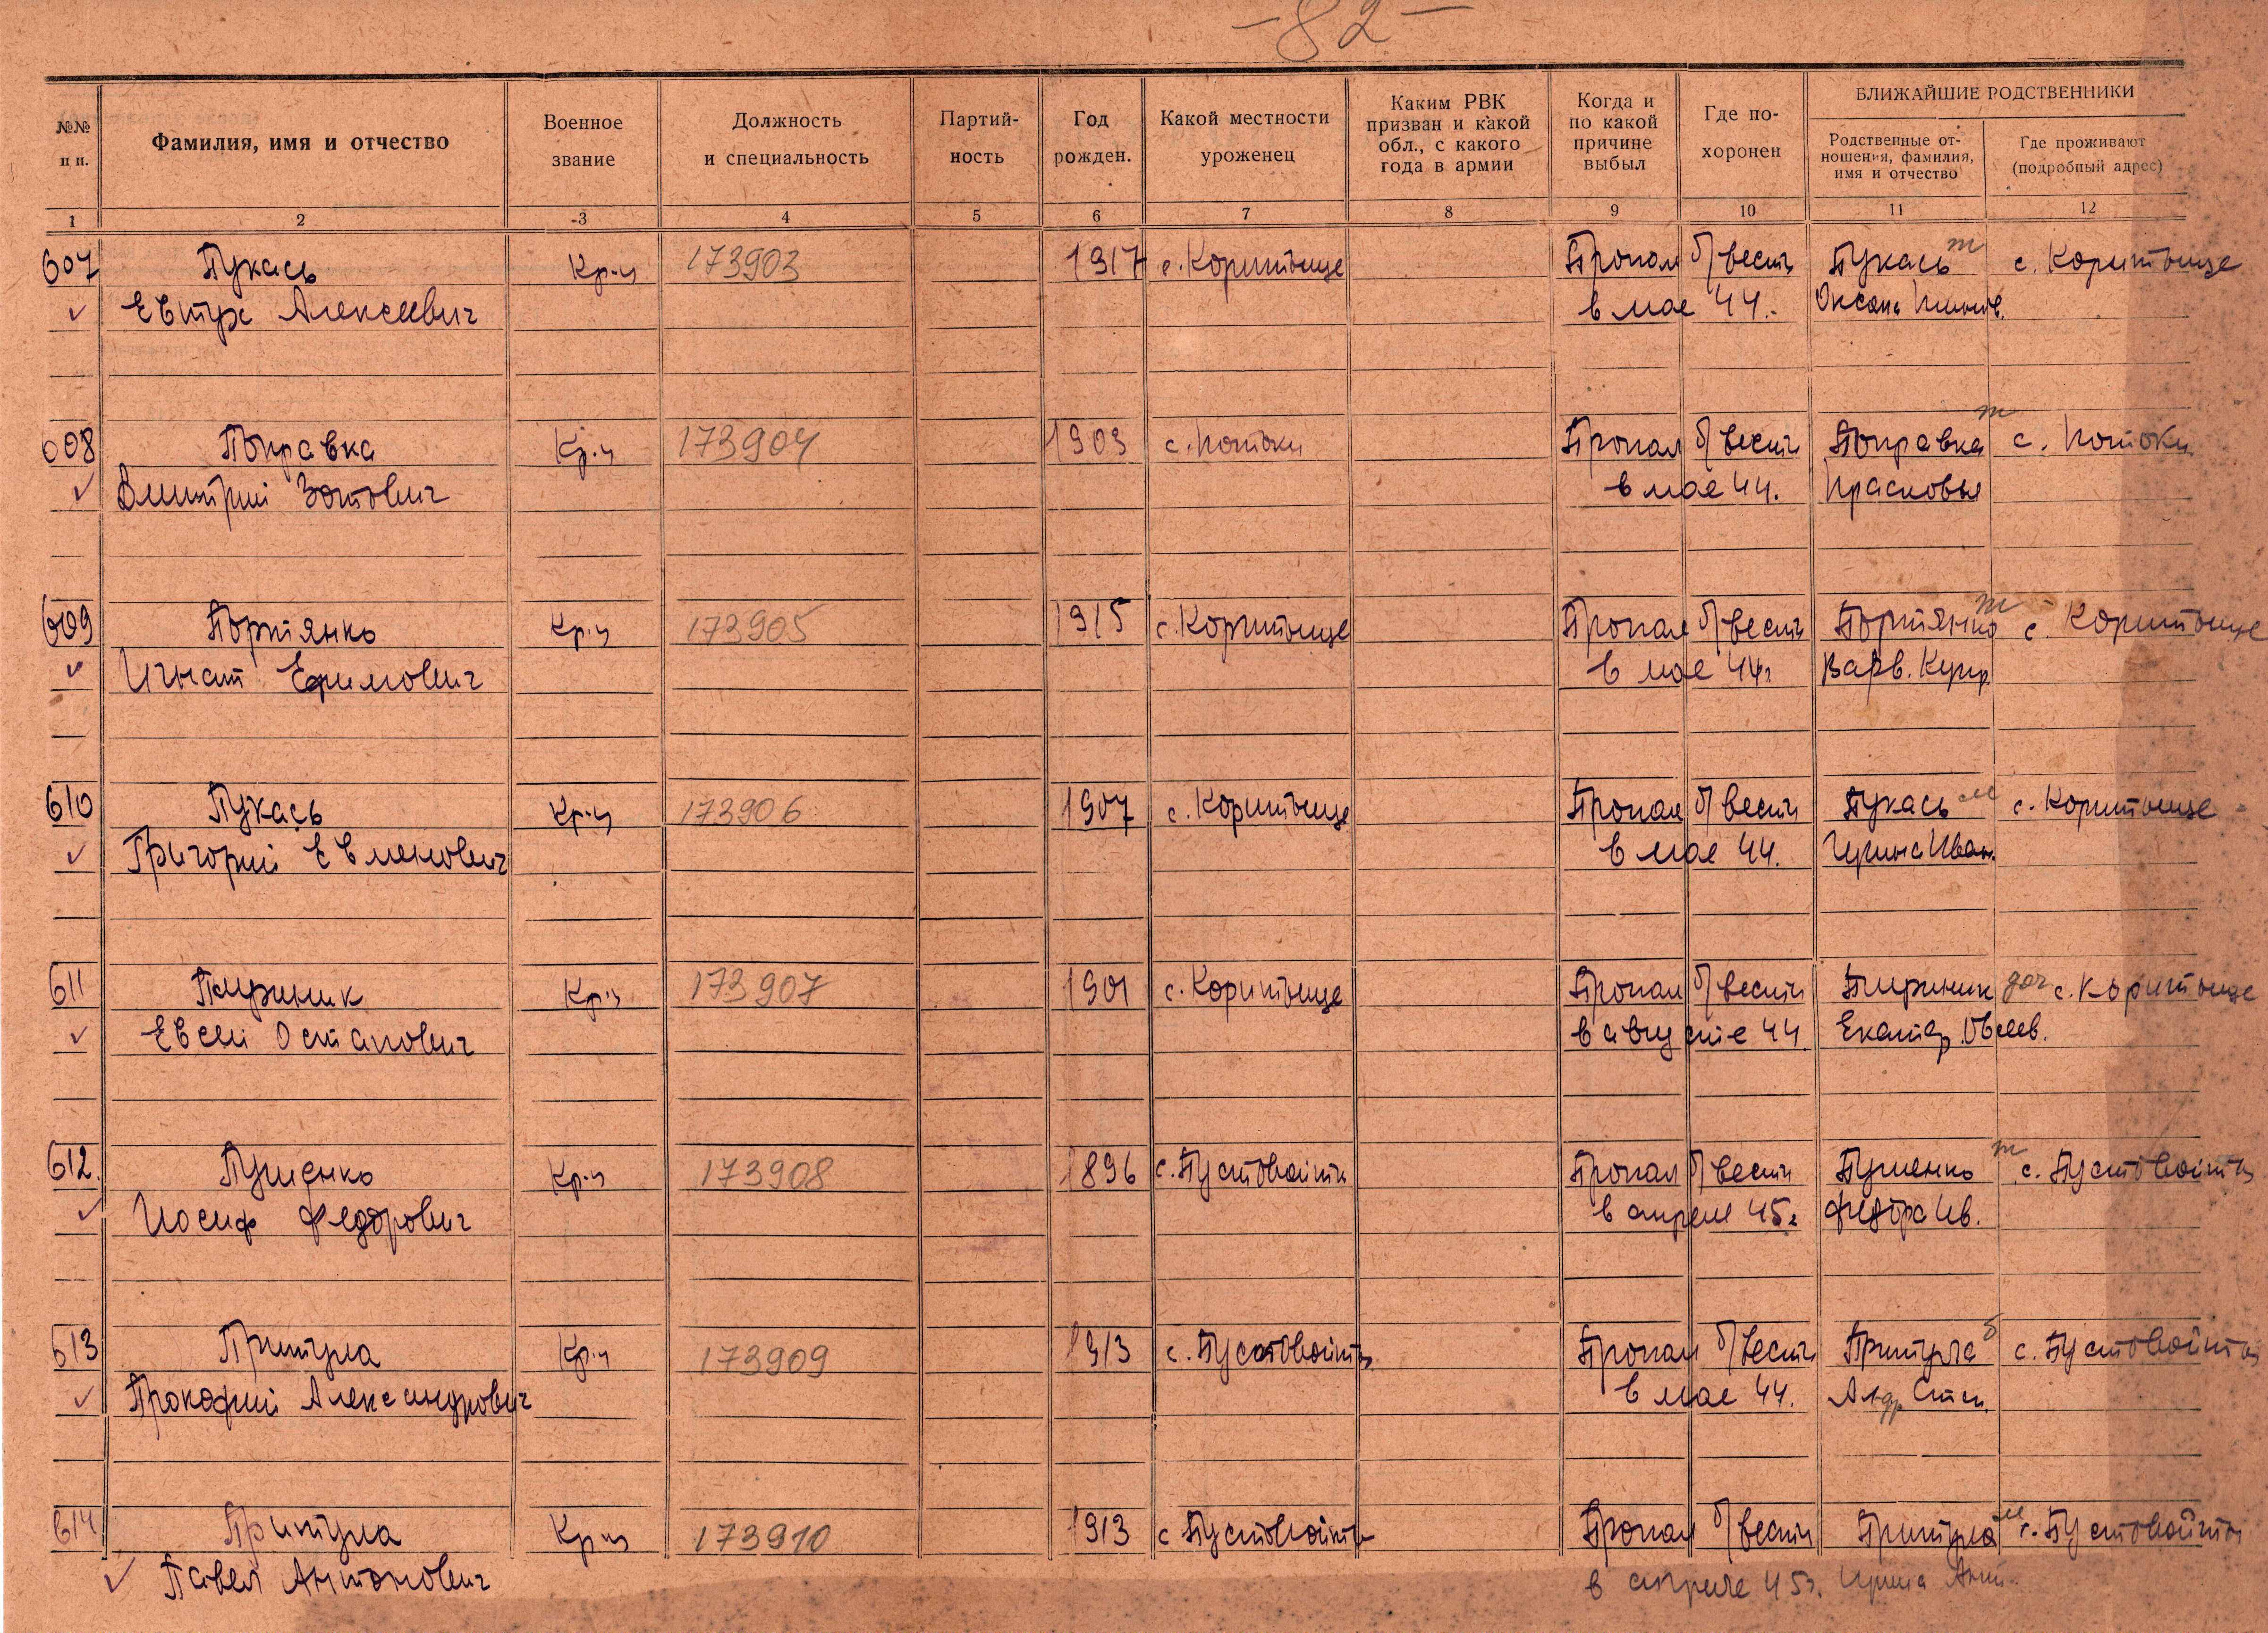 -82-
№№ п п.
Фамилия, имя и отчество
Военное звание
Должность и специальность
Партий-ность
Год рожден.
Какой местности уроженец
Каким РВК призван и какой обл., с какого года в армии
Когда и по какой причине выбыл
Где по-хоронен
БЛИЖАЙШИЕ РОДСТВЕННИКИ
Родственные от-ношения, фамилия, имя и отчество
Где проживают (подробный адрес)
1 2 3 4 5 6 7 8 9 10 11 12
607 Пукась Кр-ц 173903 1917 с. Коритыще Пропал б/вести Пукась ж с. Коритыще
Евтух Алексеевич в мае 44. Оксана
608 Поправка Кр-ц 173904 1903 с. Потоки Пропал б/вести Поправка ж с. Потоки
Дмитрий Зотович в мае 44. Прасковья
609 Портянко Кр-ц 173905 1915 с. Коритыще Пропал б/вести Портянко ж с. Коритыще
Игнат Ефимович в мае 44г Варв. Купр.
610 Пукась Кр-ц 173906 1907 с. Коритыще Пропал б/вести Пукась м с. Коритыще
Григорий Евменович в мае 44. Иван.
611 Пириник Кр-ц 173907 1901 с. Коритыще Пропал б/вести Пириник доч с. Коритыще
Евсей Остапович в августе 44 Екатер. Овсеев.
612. Пушенко Кр-ц 173908 1896 с. Пустовойты Пропал б/вести Пушенко ж с. Пустовойты
Иосиф Федорович в апреле 45г Федора Ив.
613 Притула Кр-ц 173909 1913 с. Пустовойты Пропал б/вести Притула б с. Пустовойты
Прокофий Александрович в мае 44. Алдр
614 Притула Кр-ц 173910 1913 с Пустовойты Пропал б/вести Притула м с. Пустовойты
Павел Антонович в апреле 45г. Ирина